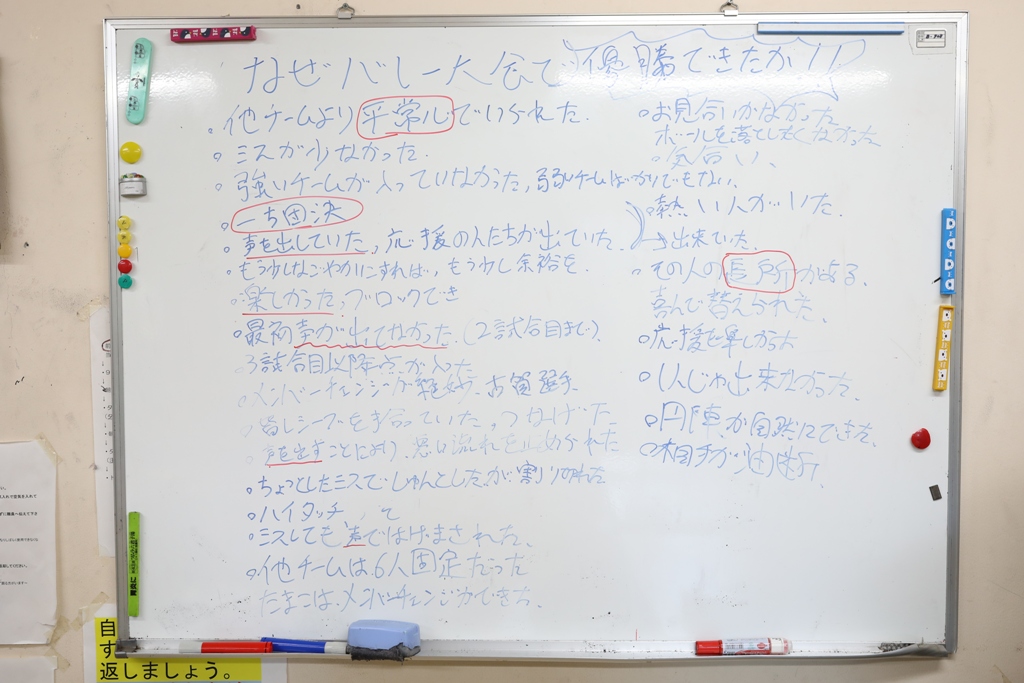 なぜバレー大会で優勝できたか!!
他チームより平常心でいられた.
ミスが少なかった.
強いチームが入っていなかった,弱いチームばかりでもない.
一ち団決
声を出していた,応援の人たちが出ていた.
もう少しなごやかにすれば,もう少し余裕を.
楽しかった,ブロックでき
最初声が出てなかった.(2試合目まで)
3試合目以降点が入った
メンバーチェンジが絶妙.古賀選手
皆レシーブを手合っていた,つなげた
声を出すことにより.悪い流れを止められた
ちょっとしたミスでしゅんとしたが割り切れた
ハイタッチ
ミスしても声ではげまされた.
他チームは6人固定だった
たまこは.メンバーチェンジができた.
お見合いがなかった
ボールを落としたくなかった
気合い、
熱い人がいた.
出来ていた.
その人の長所がある.
喜んで替えられた.
応援も楽しかった
1人じゃ出来なかった.
円陣が自然にできた.
相手が油断
自
す
返しましょう。